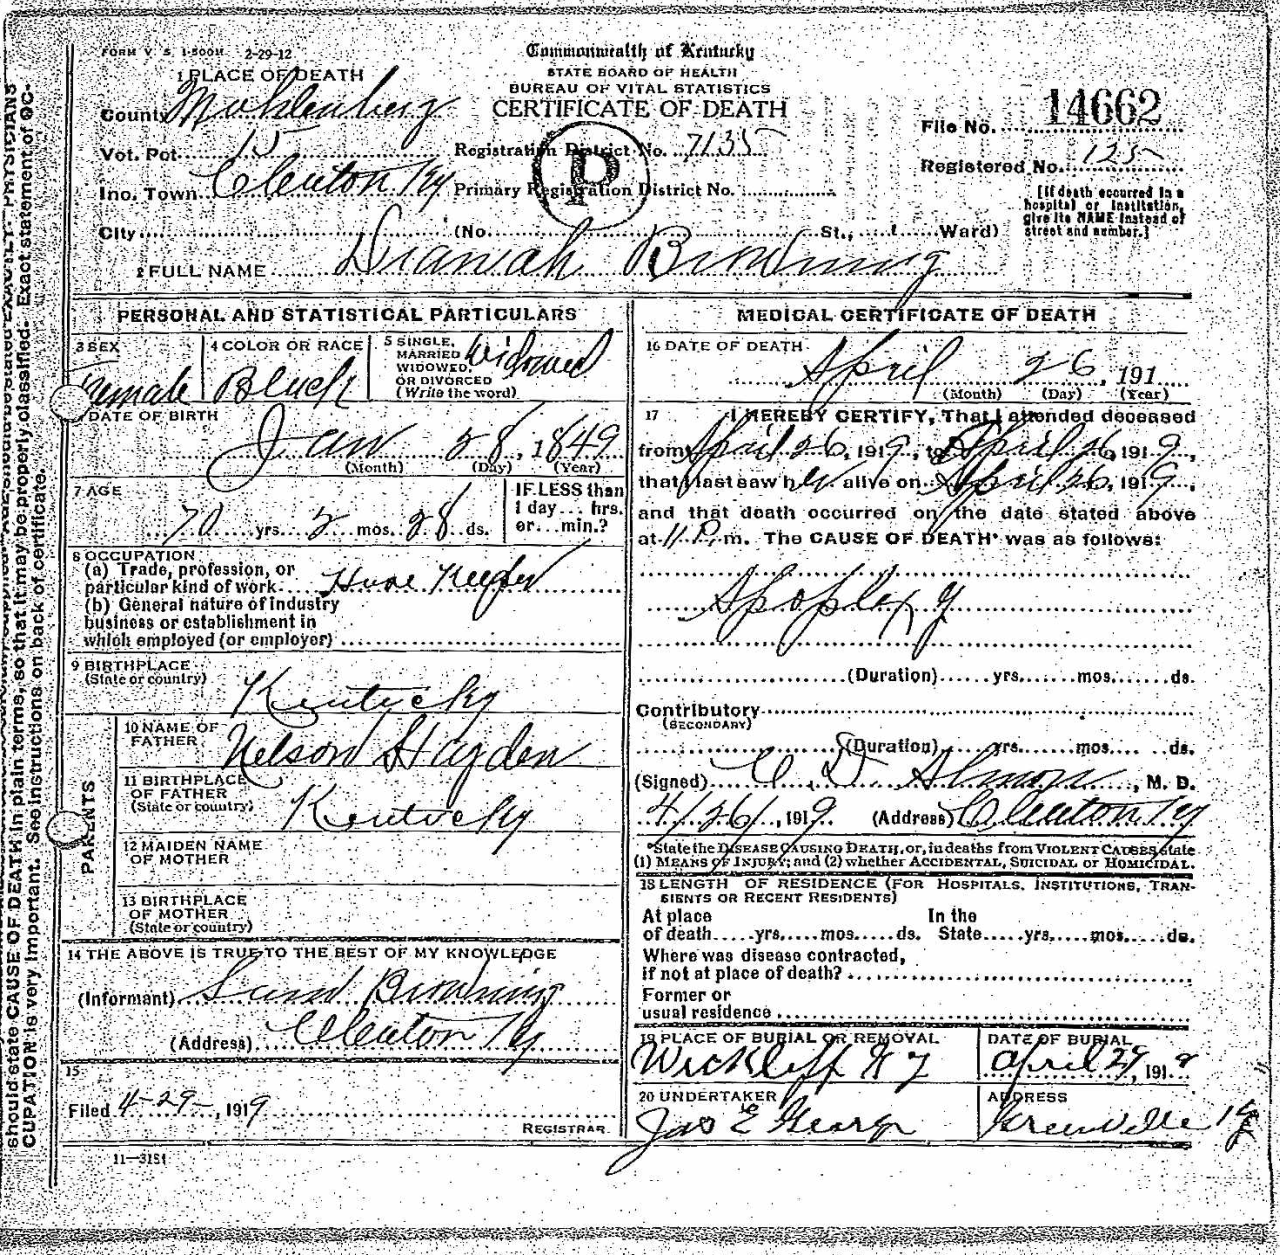 FORM V. S. 1-500M 2-29-12
Commonwealth of Kentucky
STATE BOARD OF HEALTH
BUREAU OF VITAL STATISTICS
CERTIFICATE OF DEATH
1 PLACE OF DEATH
County Mohlenberg
Vot. Pct. 15
Inc. Town Cleaton Ky
City (No. St., Ward)
Registration District No. 7135
Primary Registration District No.
P
File No. 14662
Registered No. 125
[If death occurred in a
hospital or institution,
give its NAME instead of
street and number.]
2 FULL NAME Dianah Browning
PERSONAL AND STATISTICAL PARTICULARS
3 SEX
Female
4 COLOR OR RACE
Black
5 SINGLE,
MARRIED
WIDOWED,
OR DIVORCED
(Write the word)
Widowed
DATE OF BIRTH
Jan 28, 1849
(Month) (Day) (Year)
7 AGE
70 yrs. 2 mos. 28 ds.
IF LESS than
1 day... hrs.
or... min.?
8 OCCUPATION
(a) Trade, profession, or
particular kind of work House Keeper
(b) General nature of industry
business or establishment in
which employed (or employer)
9 BIRTHPLACE
(State or country)
Kentucky
PARENTS
10 NAME OF
FATHER
Nelson Hayden
11 BIRTHPLACE
OF FATHER
(State or country)
Kentucky
12 MAIDEN NAME
OF MOTHER
13 BIRTHPLACE
OF MOTHER
(State or country)
14 THE ABOVE IS TRUE TO THE BEST OF MY KNOWLEDGE
(Informant) Browning
(Address) Cleaton Ky
15
Filed 4-29-, 1919
REGISTRAR
11-3151
MEDICAL CERTIFICATE OF DEATH
16 DATE OF DEATH
April 26, 191
(Month) (Day) (Year)
17 I HEREBY CERTIFY, That I attended deceased
from April 26, 1919, to April 26, 1919,
that I last saw her alive on April 26, 1919,
and that death occurred on the date stated above
at 11 P. m. The CAUSE OF DEATH* was as follows:
Apoplexy
(Duration) yrs. mos. ds.
Contributory
(SECONDARY)
(Duration) yrs. mos. ds.
(Signed) C. D. , M. D.
4/26/, 1919. (Address) Cleaton Ky
*State the DISEASE CAUSING DEATH, or, in deaths from VIOLENT CAUSES state
(1) MEANS OF INJURY; and (2) whether ACCIDENTAL, SUICIDAL or HOMICIDAL.
18 LENGTH OF RESIDENCE (FOR HOSPITALS, INSTITUTIONS, TRAN-
SIENTS OR RECENT RESIDENTS)
At place
of death yrs. mos. ds.
In the
State yrs. mos. ds.
Where was disease contracted,
if not at place of death?
Former or
usual residence
19 PLACE OF BURIAL OR REMOVAL
Wickliff Ky
DATE OF BURIAL
April 29, 1919
20 UNDERTAKER
Jas E George
ADDRESS
Greenville Ky
should state CAUSE OF DEATH in plain terms, so that it may be properly classified. Exact statement of OC-
CUPATION is very important. See instructions on back of certificate.